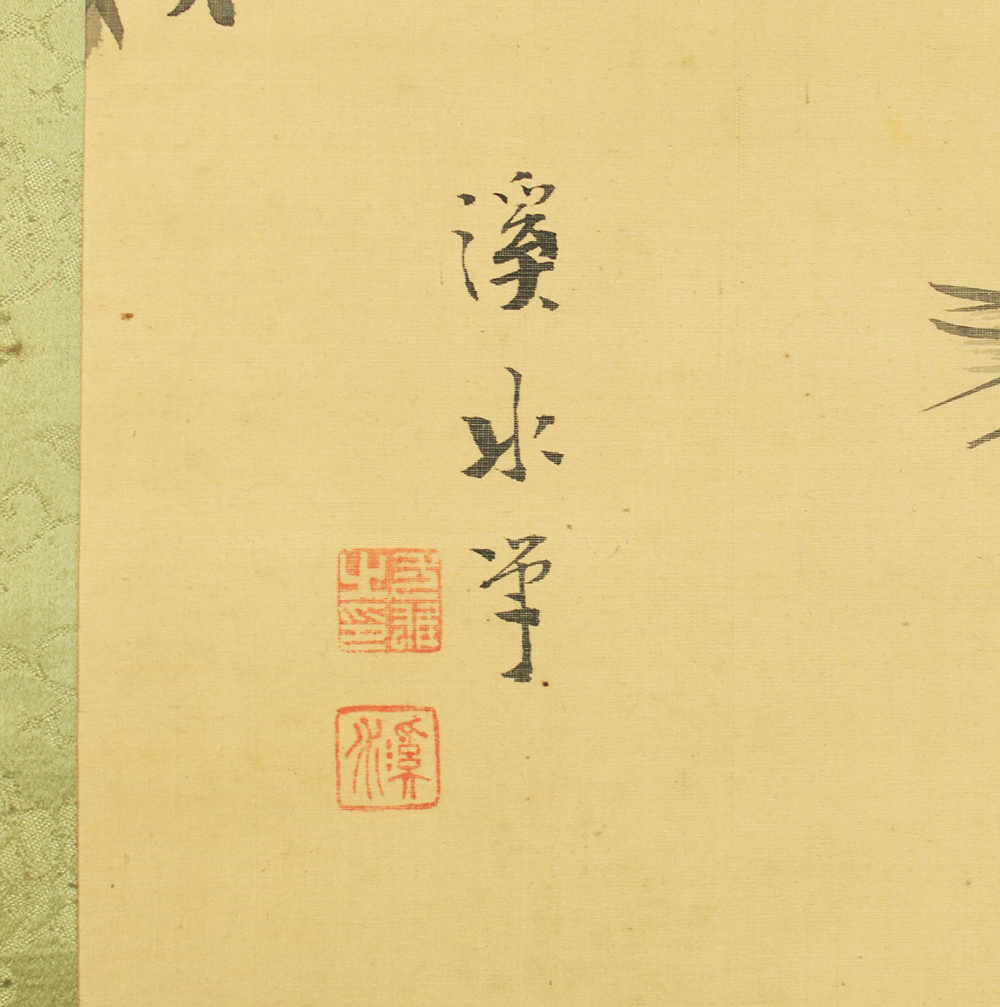 溪水筆
溪水